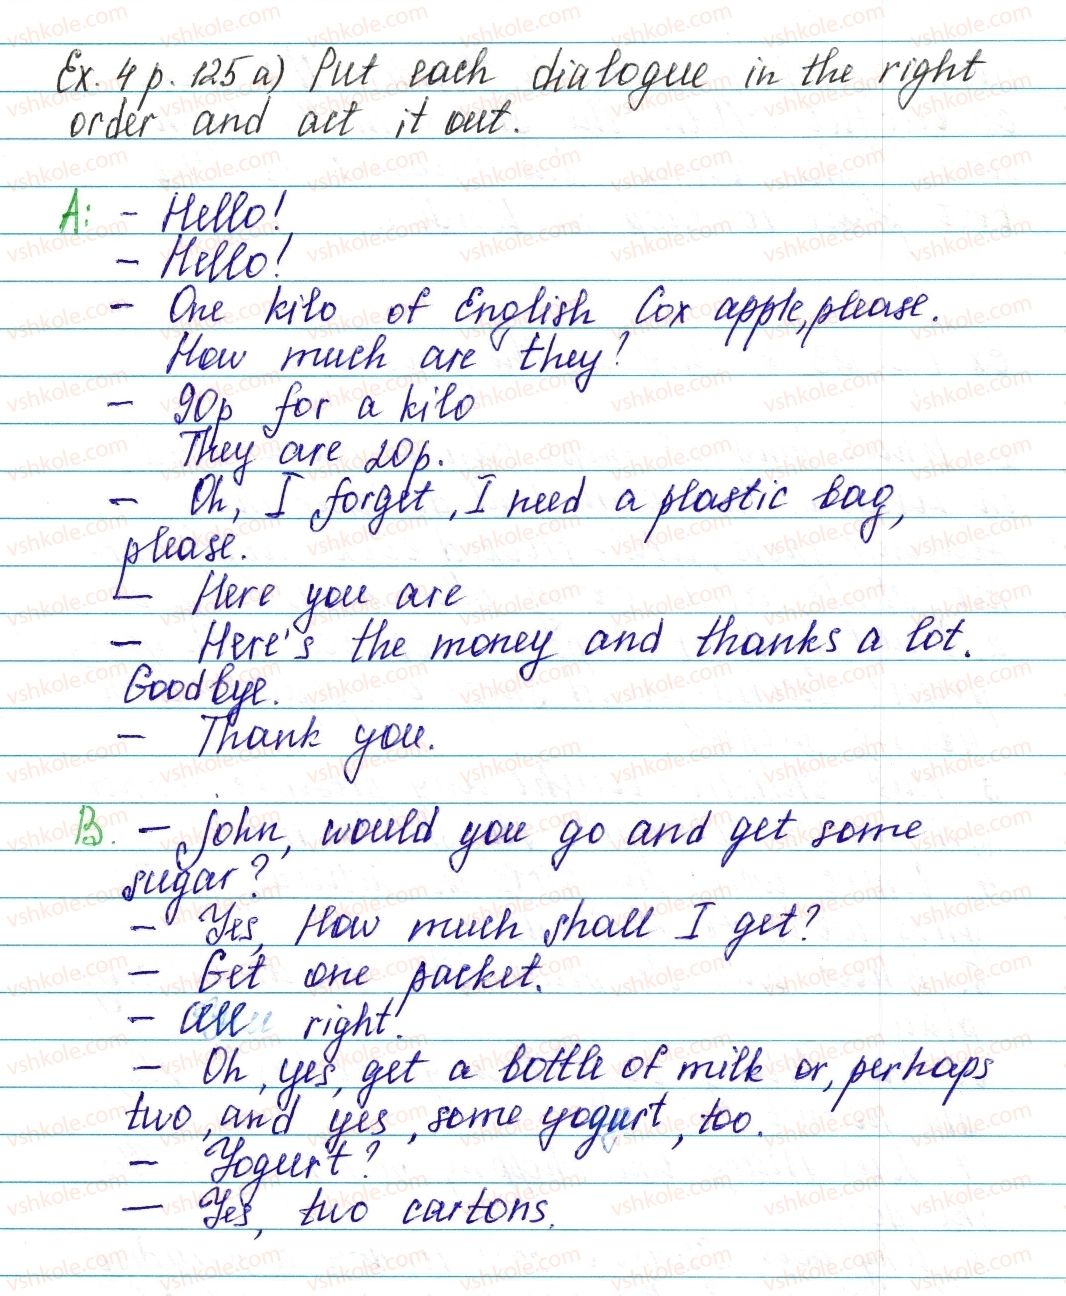 Ex. 4 p. 125 a) Put each dialogue in the right
order and act it out.
A: - Hello!
- Hello!
- One kilo of English Cox apple, please.
How much are they?
- 90p for a kilo
They are 20p.
- Oh, I forget, I need a plastic bag,
please.
- Here you are
- Here's the money and thanks a lot.
Goodbye.
- Thank you.
B. - John, would you go and get some
sugar?
- Yes, How much shall I get?
- Get one packet.
- All right!
- Oh, yes, get a bottle of milk or, perhaps
two, and yes, some yogurt, too.
- Yogurt?
- Yes, two cartons.